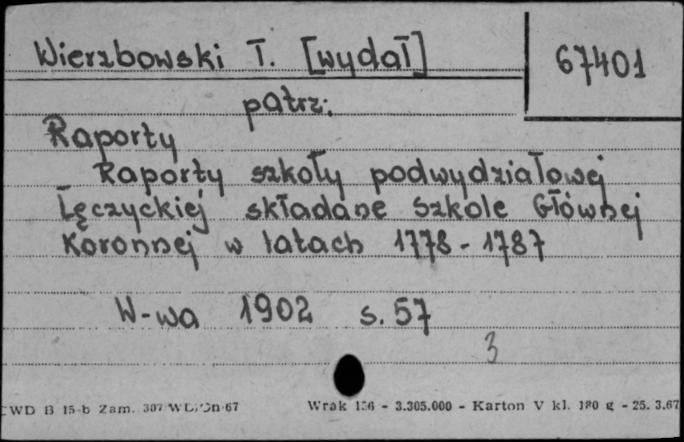 Wierzbowski T. [wydał]
67401
patrz:
Raporty
Raporty szkoły podwydziałowej
Łęczyckiej składane Szkole Głównej
Koronnej w latach 1778-1787
W-wa 1902 s. 57
3
CWD B 15-b Zam. 307 67
Wrak 136 - 3.305.000 - Karton V kl. 180 g - 25. 3.67